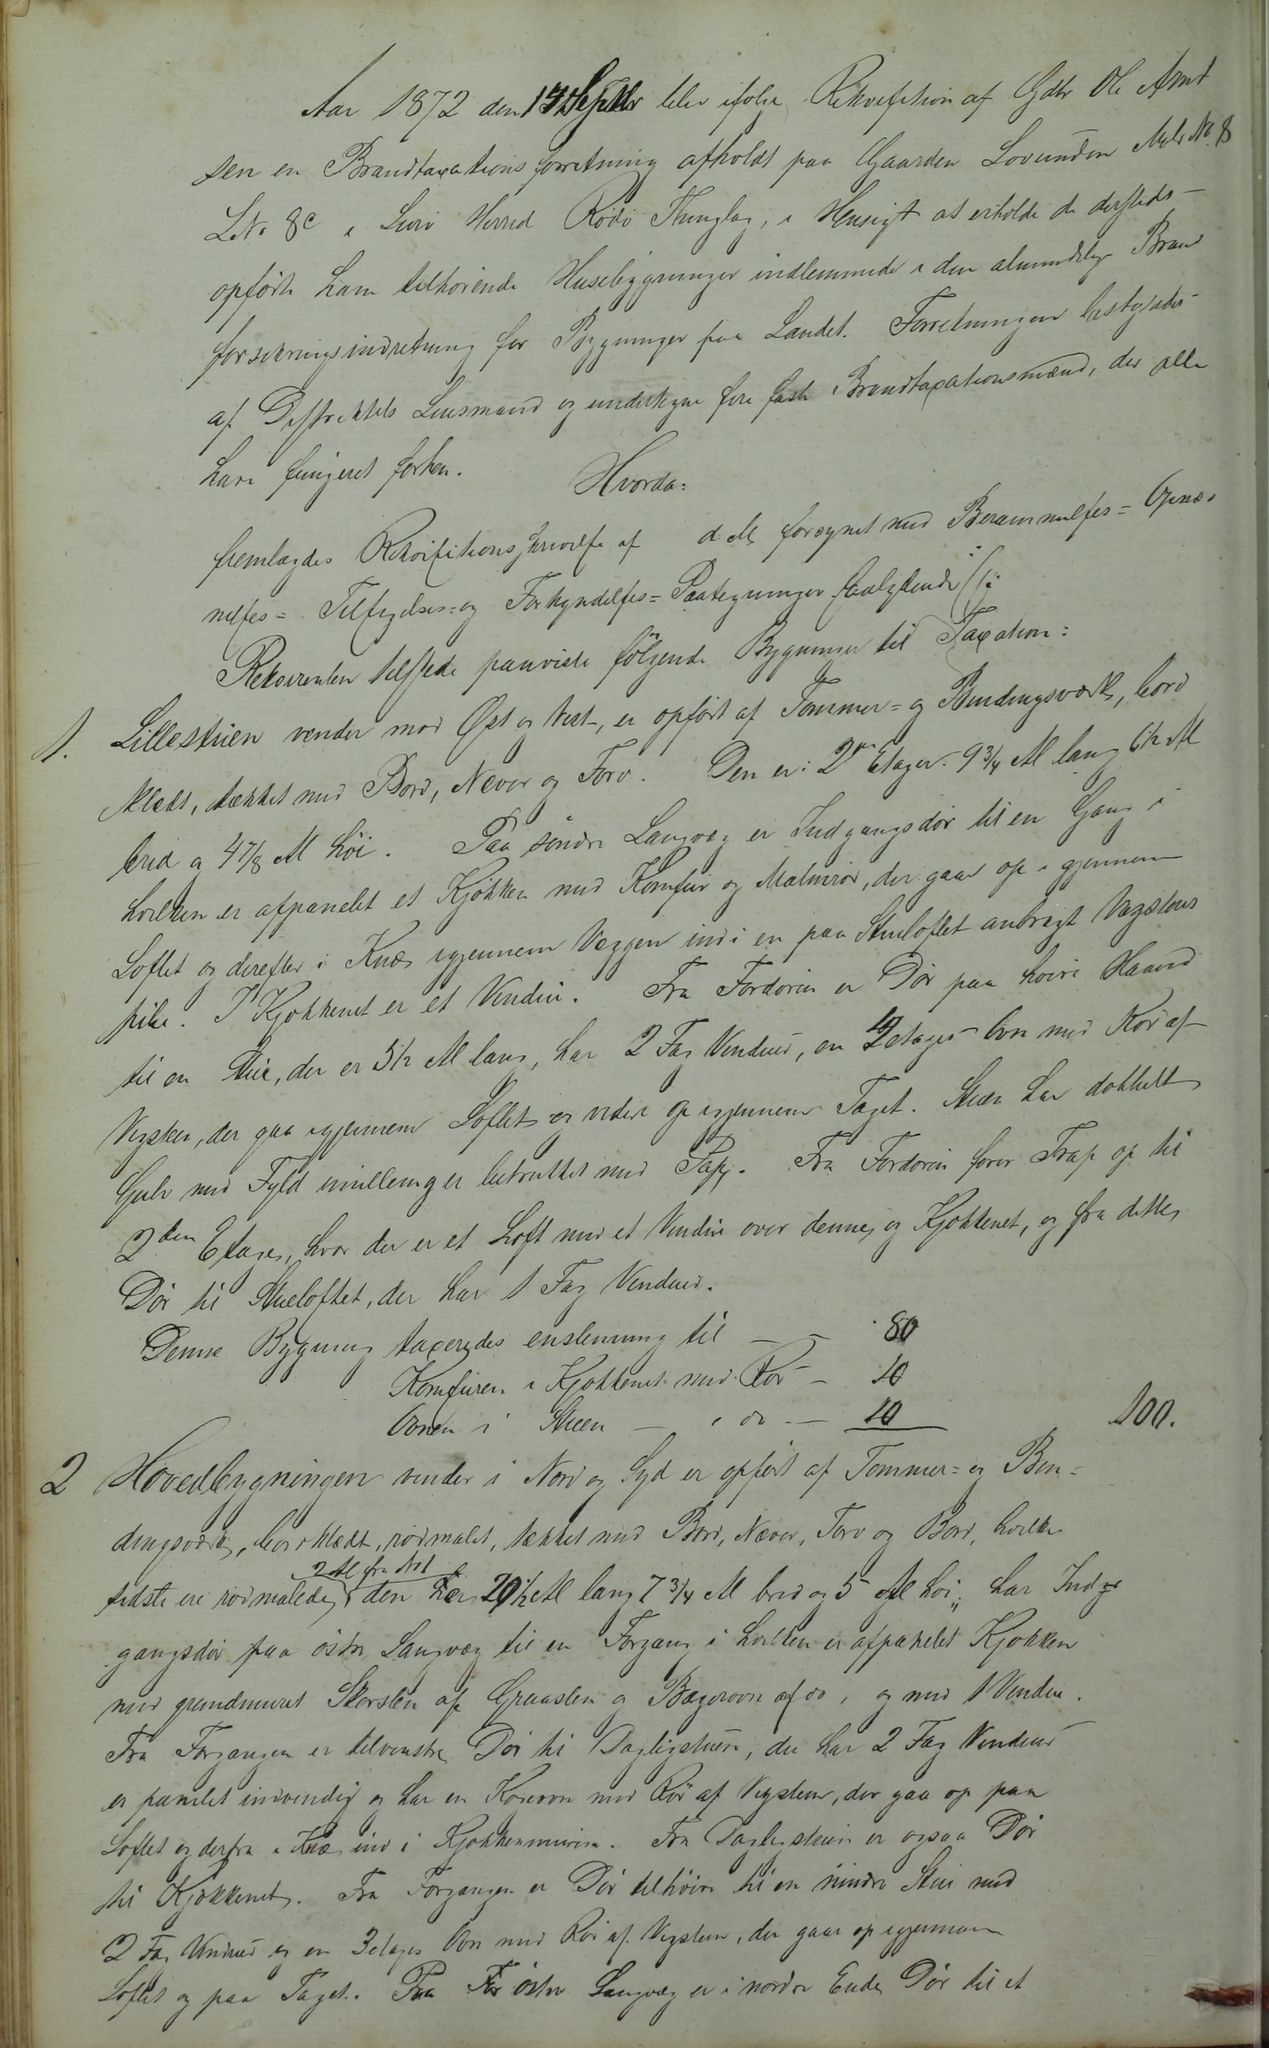 Aar 1872 den 17 Septbr blev ifølge Rekvisition af Gdbr Ole Arnt
sen en Brandtaxationsforretning afholdt paa Gaarden Lovunden Matr No 8
L No 8c i Lurö Herred Rödö Thinglag, i Hensigt at erholde de dersteds
opförte ham tilhörende Husebygninger indlemmede i den almindelige Brand
forsikringsindretning for Bygninger paa Landet. Forretningen bestyredes
af Distriktets Lensmand og undertegne fire faste Brandtaxationsmænd, der alle
have fungeret förhen.
Hvorda:
fremlagdes Rekvisitionsskrivelse af d. M. forsynet med Berammelses= Opnæv
nelses= Tilsigelses= og Forkyndelses= Paategninger saalydende
Rekvirenten tilstede paaviste fölgende Bygninger til Taxation:
1. Lillestuen vender mod Öst og Vest, er opfört af Tömmer= og Bindingsværk, bord
klædt, tækket med Bord, Næver og Torv. Den er i 2de Etager. 9 3/4 Al lang 6 1/2 Al
bred og 4 7/8 Al höi. Paa söndre Langvæg er Indgangsdör til en Gang i
hvilken er afpanelet et Kjökken med Komfur og Malmrör, der gaar op igjennem
Loftet og derefter i Knæ igjennem Væggen ind i en paa Stueloftet anbragt Vegstens
pibe. I Kjökkenet er et Vindue. Fra Fordören er Dör paa höire Haand
til en Stue, der er 5 1/2 Al lang, har 2 Fag Vinduer, en 2 etages Ovn med Rör af
Vegsten, der gaa igjennem Loftet og videre op igjennem Taget. Stuen har dobbelt
Gulv med Fyld imellem og er betrukket med Papp. Fra Fordören förer Trap op til
2den Etage, hvor der er et Loft med et Vindue over denne og Kjökkenet, og fra dette
Dör til Stueloftet, der har 1 Fag Vinduer.
Denne Bygning taxeredes enstemmig til — — 80
Komfuren i Kjökkenet med Rör — 10
Ovnen i Stuen — i do — 10 100.
2 Hovedbygningen vender i Nord og Syd er opfört af Tömmer= og Bin=
dingsværk, bordklædt, rödmalet, tækket med Bord, Næver, Torv og Bord, hvilke
2 Al fra
sidste ere rödmalede, den er 20 1/2 Al lang 7 3/4 Al bred og 5 Al höi, har Ind
gangsdör paa östre Langvæg til en Forgang i hvilken er afpanelet Kjökken
med grundmuret Skorsten af Graasten og Bagerovn af do, og med 1 Vindue.
Fra Forgangen er tilvenstre Dör til Dagligstuen, der har 2 Fag Vinduer
er panelet indvendig og har en Kakelovn med Rör af Vegsten, der gaa op paa
Loftet og derfra i Knæ ind i Kjökkenmuren. Fra Dagligstuen er ogsaa Dör
til Kjökkenet. Fra Forgangen er Dör tilhöire til en mindre Stue med
2 Fag Vinduer og en 3 etages Ovn med Rör af Vegsten, der gaar op igjennem
Loftet og paa Taget. Paa östre Langvæg er i nordre Ende Dör til et